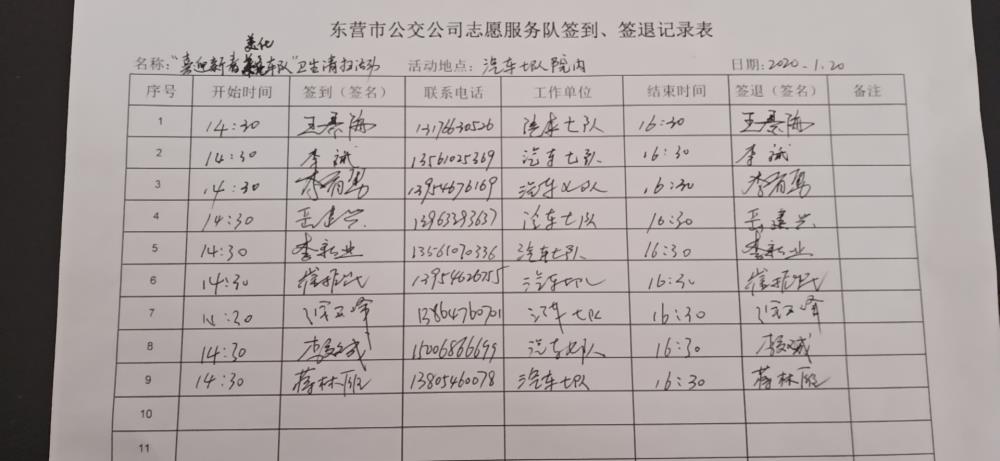 东营市公交公司志愿服务队签到、签退记录表
美化
名称："喜迎新春 车队"卫生清扫活动 活动地点：汽车七队院内 日期：2020.1.20
序号 开始时间 签到（签名） 联系电话 工作单位 结束时间 签退（签名） 备注
1 14:30 王秦海 13176630526 汽车七队 16:30 王秦海
2 14:30 李斌 13561025369 汽车七队 16:30 李斌
3 14:30 李有勇 13954676169 汽车七队 16:30 李有勇
4 14:30 岳建兴 13963393637 汽车七队 16:30 岳建兴
5 14:30 李新业 13561070336 汽车七队 16:30 李新业
6 14:30 13954626755 汽车七队 16:30
7 14:30 13864760701 汽车七队 16:30
8 14:30 15006866699 汽车七队 16:30
9 14:30 蒋林 13805460078 汽车七队 16:30 蒋林
10
11